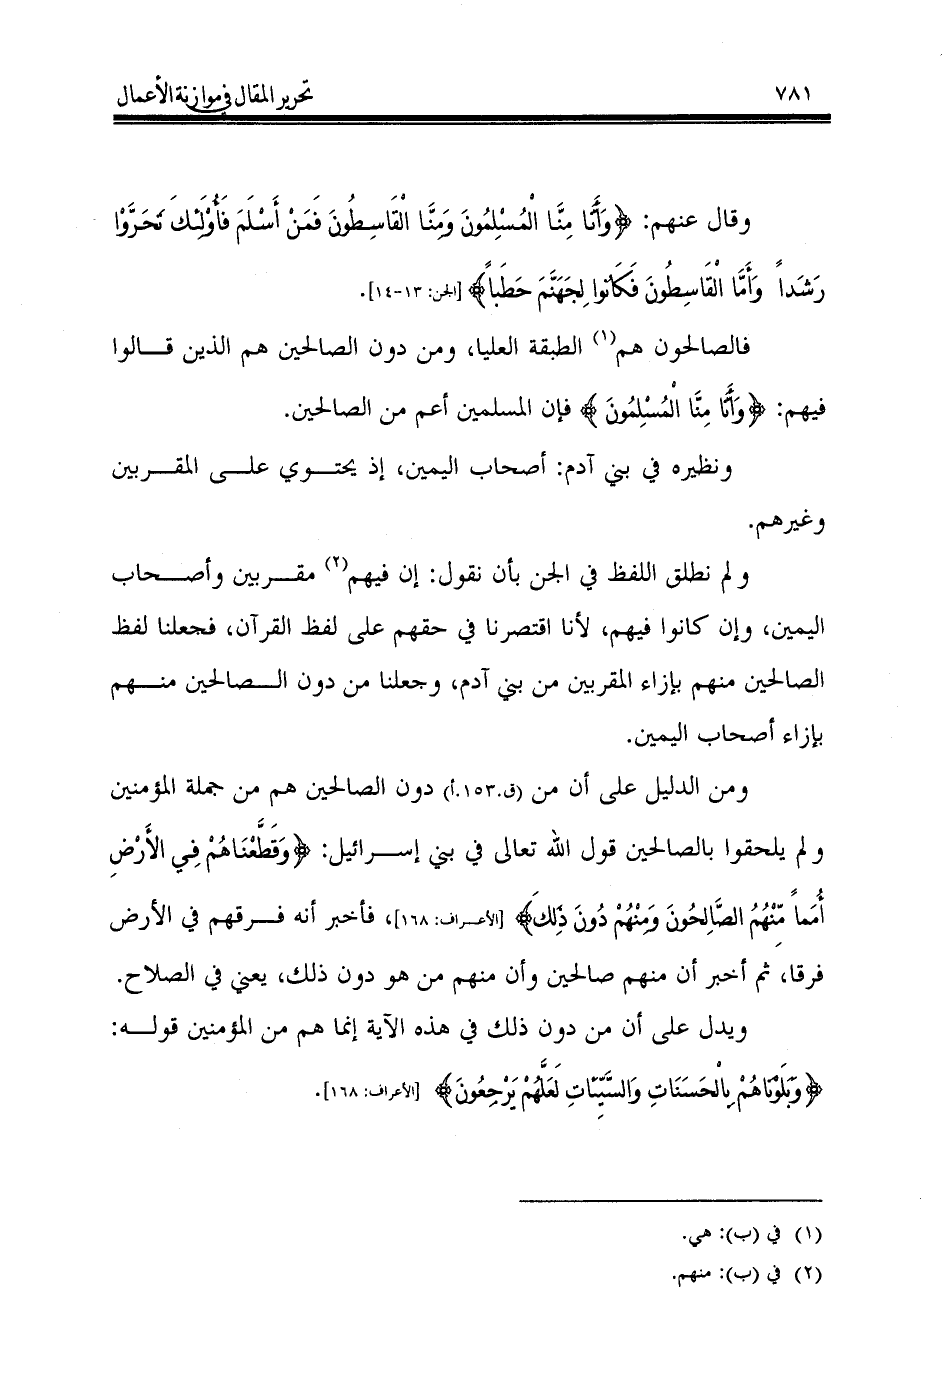 ٧٨١ تحرير المقال في موازنة الأعمال
وقال عنهم: ﴿وَأَنَّا مِنَّا الْمُسْلِمُونَ وَمِنَّا الْقَاسِطُونَ فَمَنْ أَسْلَمَ فَأُوْلَئِكَ تَحَرَّوْا
رَشَداً وَأَمَّا الْقَاسِطُونَ فَكَانُوا لِجَهَنَّمَ حَطَباً﴾ [الجن: ١٣-١٤].
فالصالحون هم(١) الطبقة العليا، ومن دون الصالحين هم الذين قالوا
فيهم: ﴿وَأَنَّا مِنَّا الْمُسْلِمُونَ﴾ فإن المسلمين أعم من الصالحين.
ونظيره في بني آدم: أصحاب اليمين، إذ يحتوي على المقربين
وغيرهم.
ولم نطلق اللفظ في الجن بأن نقول: إن فيهم(٢) مقربين وأصحاب
اليمين، وإن كانوا فيهم، لأنا اقتصرنا في حقهم على لفظ القرآن، فجعلنا لفظ
الصالحين منهم بإزاء المقربين من بني آدم، وجعلنا من دون الصالحين منهم
بإزاء أصحاب اليمين.
ومن الدليل على أن من (ق.١٥٣.أ) دون الصالحين هم من جملة المؤمنين
ولم يلحقوا بالصالحين قول الله تعالى في بني إسرائيل: ﴿وَقَطَّعْنَاهُمْ فِي الأَرْضِ
أُمَماً مِّنْهُمُ الصَّالِحُونَ وَمِنْهُمْ دُونَ ذَلِكَ﴾ [الأعراف: ١٦٨]، فأخبر أنه فرقهم في الأرض
فرقا، ثم أخبر أن منهم صالحين وأن منهم من هو دون ذلك، يعني في الصلاح.
ويدل على أن من دون ذلك في هذه الآية إنما هم من المؤمنين قوله:
﴿وَبَلَوْنَاهُمْ بِالْحَسَنَاتِ وَالسَّيِّئَاتِ لَعَلَّهُمْ يَرْجِعُونَ﴾ [الأعراف: ١٦٨].
(١) في (ب): هي.
(٢) في (ب): منهم.